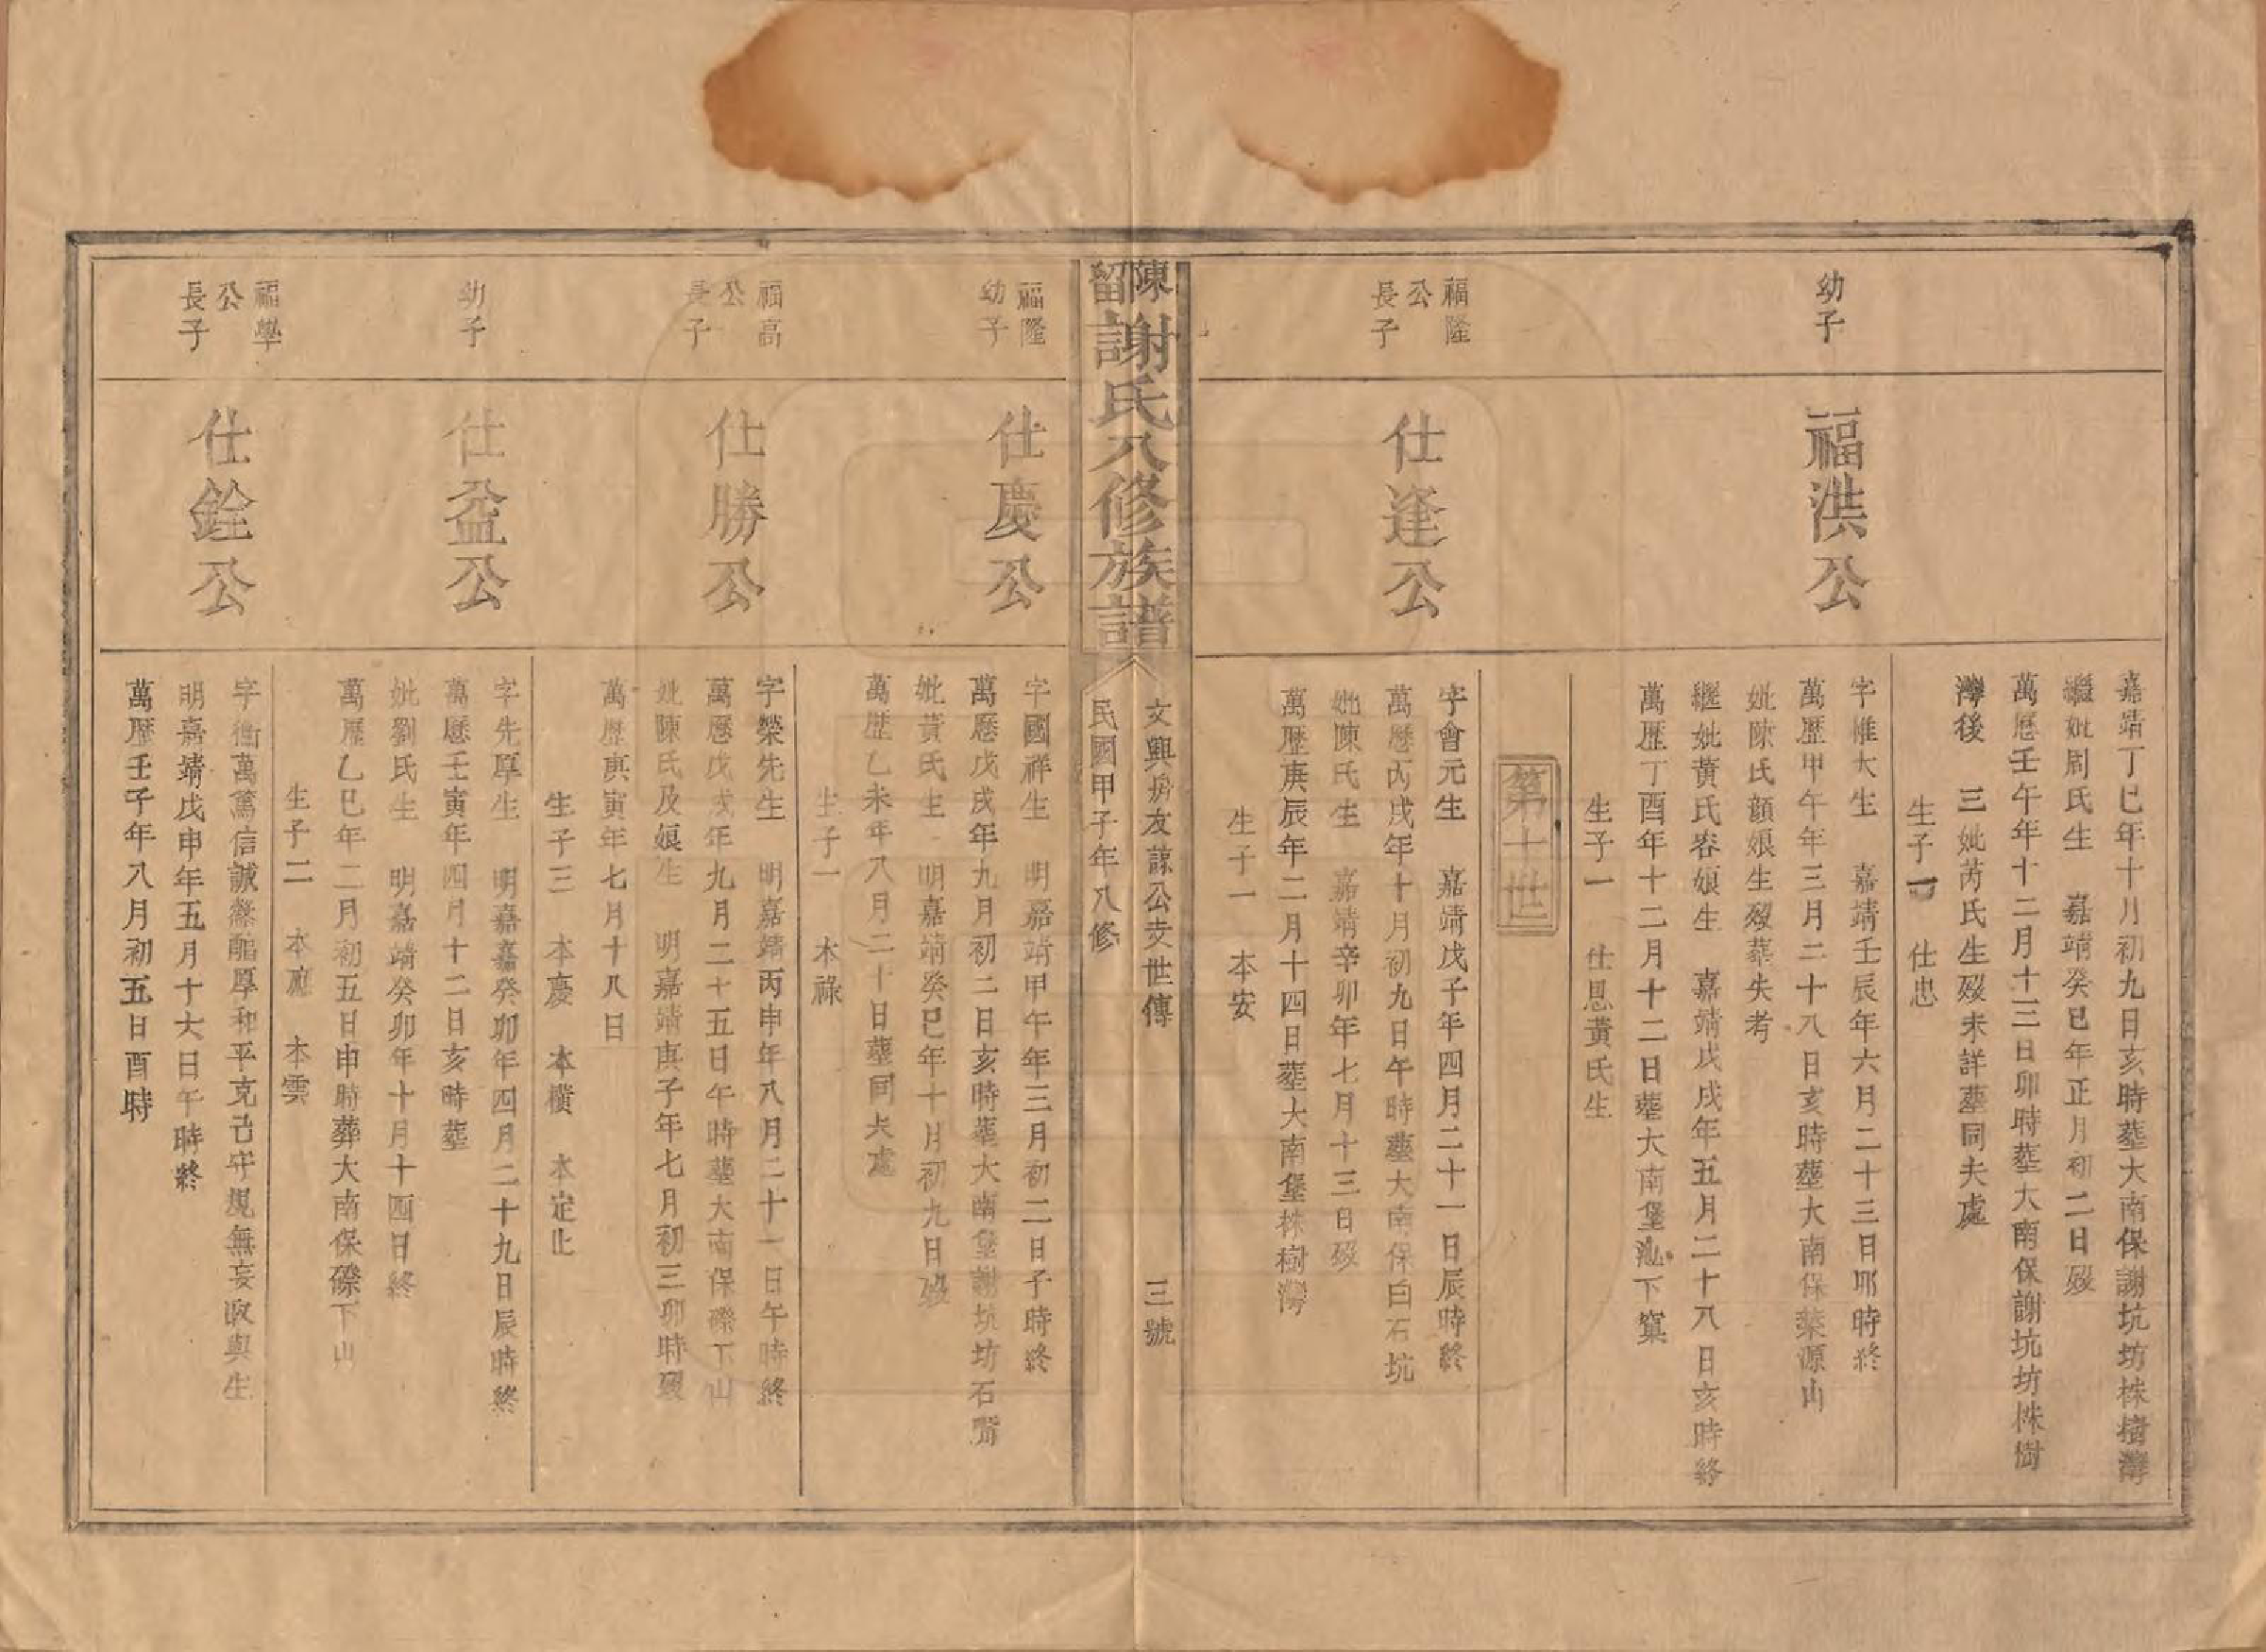 嘉靖丁巳年十月初九日亥時塟大南保謝坑坊株樹灣
繼妣周氏生　嘉靖癸巳年正月初二日歿
萬歷壬午年十二月十三日卯時塟大南保謝坑坊株樹
灣後　三妣芮氏生歿未詳塟同夫處
生子一　仕忠
幼子
福洪公
字惟大生　嘉靖壬辰年六月二十三日卯時終
萬歷甲午年三月二十八日亥時塟大南保葉源山
妣陳氏顔娘生歿塟失考
繼妣黃氏容娘生　嘉靖戊戌年五月二十八日亥時終
萬歷丁酉年十二月十二日塟大南堡汕下窠
生子一　仕恩黃氏生
第十世
福隆公長子
仕逢公
字會元生　嘉靖戊子年四月二十一日辰時終
萬歷丙戌年十月初九日午時塟大南保白石坑
妣陳氏生　嘉靖辛卯年七月十三日歿
萬歷庚辰年二月十四日塟大南堡株樹灣
生子一　本安
陳留謝氏八修族譜
文興房友諒公支世傳　三號
民國甲子年八修
福隆幼子
仕慶公
字國祥生　明嘉靖甲午年三月初二日子時終
萬歷戊戌年九月初二日亥時塟大南堡謝坑坊石腎
妣黃氏生　明嘉靖癸巳年十月初九日歿
萬歷乙未年八月二十日塟同夫處
生子一　本祿
福高公長子
仕勝公
字榮先生　明嘉靖丙申年八月二十一日午時終
萬歷戊戌年九月二十五日午時塟大南保磜下山
妣陳氏及娘生　明嘉靖庚子年七月初三卯時歿
萬歷庚寅年七月十八日
生子三　本慶　本横　本定止
幼子
仕益公
字先厚生　明嘉嘉癸卯年四月二十九日辰時終
萬歷壬寅年四月十二日亥時塟
妣劉氏生　明嘉靖癸卯年十月十四日終
萬歷乙巳年二月初五日申時葬大南保磜下山
生子二　本應　本雲
福學公長子
仕銓公
字衡萬篤信誠慤醞厚和平克己守規無妄收與生
明嘉靖戊申年五月十六日午時終
萬歷壬子年八月初五日酉時